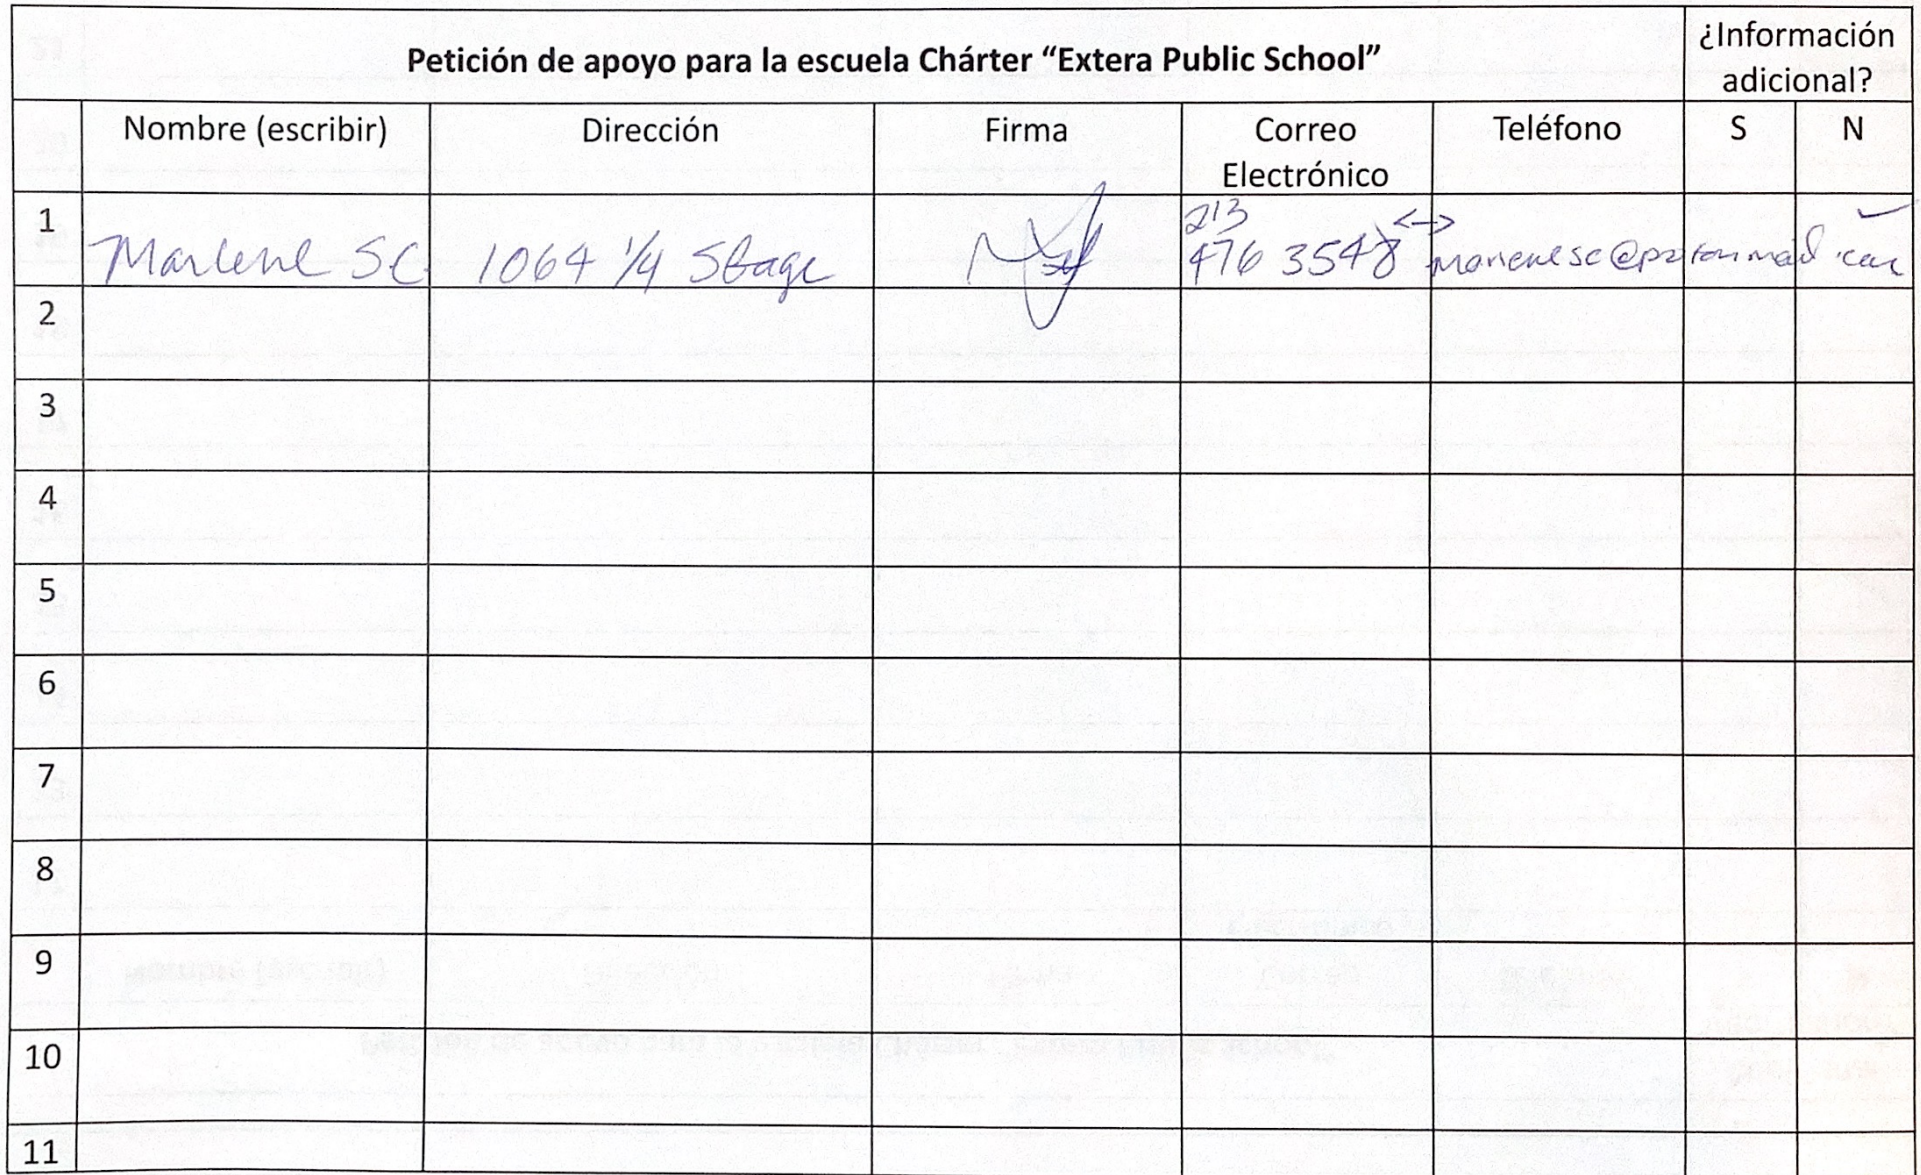 Petición de apoyo para la escuela Chárter “Extera Public School”
¿Información
adicional?
Nombre (escribir) Dirección Firma Correo
Electrónico Teléfono S N
1 Marlene SC 1064 1/4 213
476 3548 <-> ✓
2
3
4
5
6
7
8
9
10
11